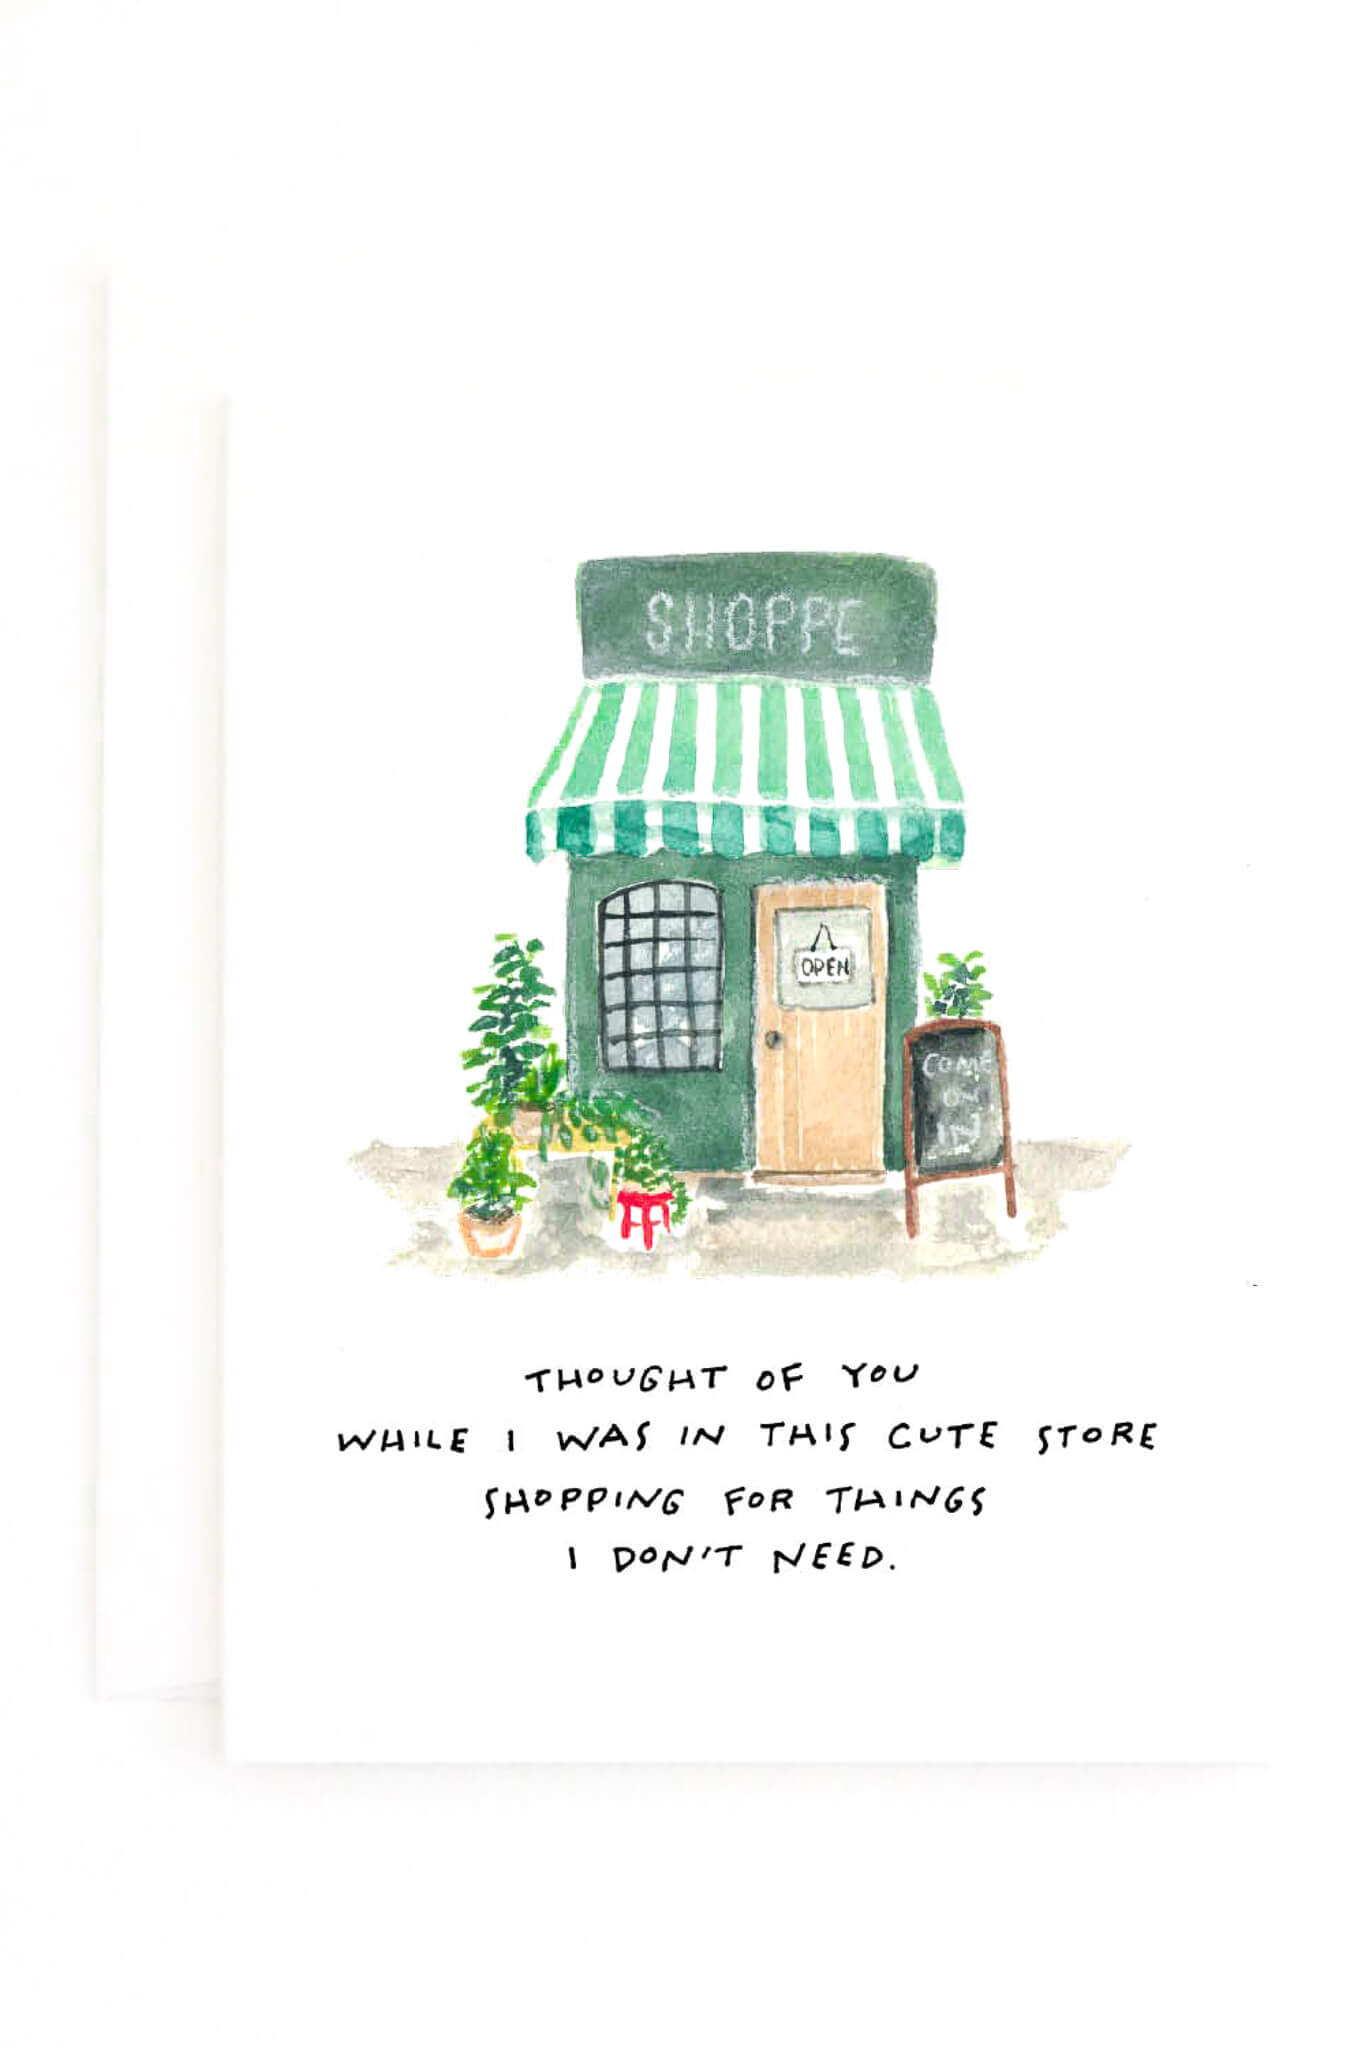 SHOPPE
OPEN
COME
ON
IN
THOUGHT OF YOU
WHILE I WAS IN THIS CUTE STORE
SHOPPING FOR THINGS
I DON'T NEED.